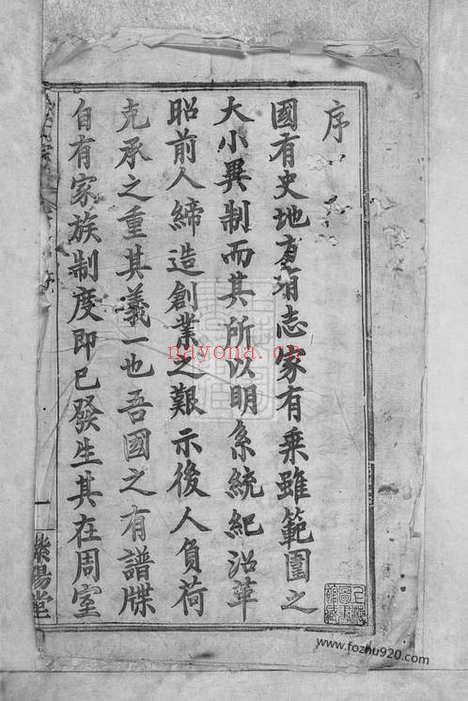 序
國有史地有志家有乘雖範圍之
大小異制而其所以明系統紀沿革
昭前人締造創業之艱示後人負荷
克承之重其義一也吾國之有譜牒
自有家族制度即已發生其在周室
一
紫陽堂
nayona.cn
www.fozhu920.com